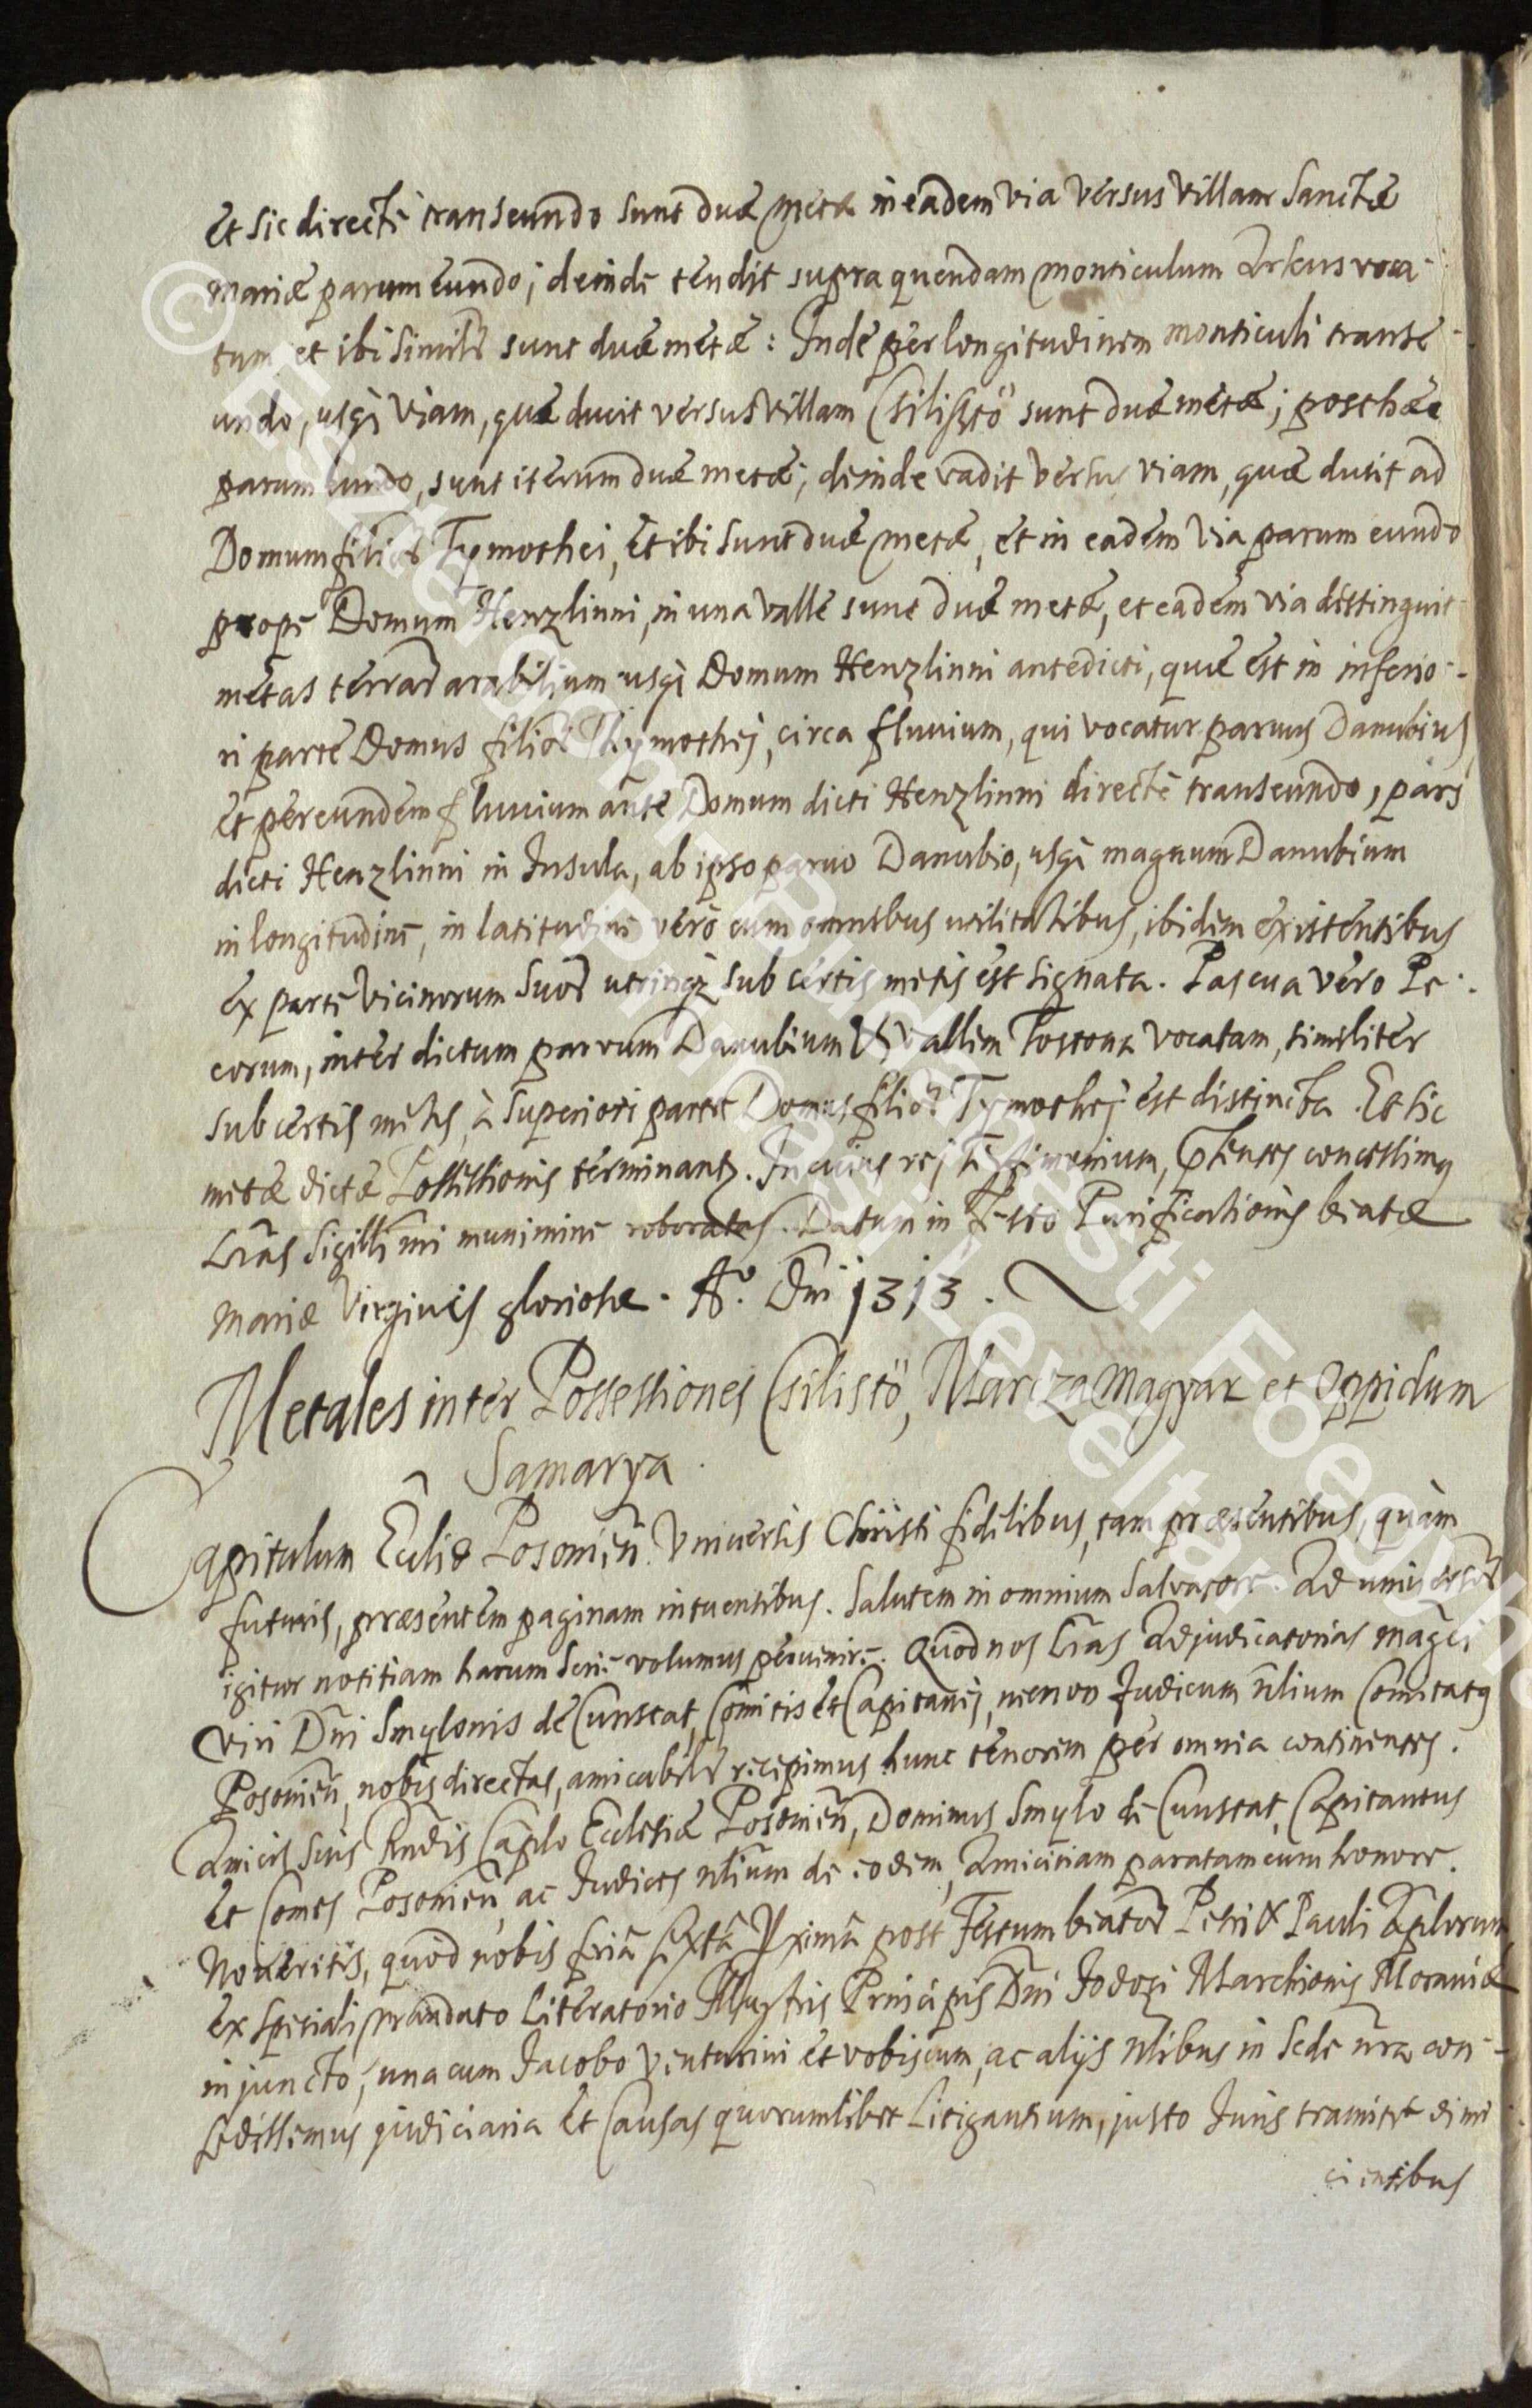 Et sic directè transeundo sunt duæ metæ in eadem via versus villam Sanctæ
Mariæ parum eundo; deindè tendit supra quendam monticulum Arkus voca-
tum, et ibi similr sunt duæ metæ: Inde per longitudinem monticuli transe-
undo, usq; viam, quæ ducit versus villam Csilistö sunt duæ metæ; posthæc
parum eundo, sunt iterum duæ metæ; deinde vadit versus viam, quæ ducit ad
Domum filior Tymothei, et ibi sunt duæ metæ, et in eadem via parum eundo
propè Domum Henzlinni, in una valle sunt duæ metæ, et eadem via distinguit
metas terrar arabilium usq; Domum Henzlinni antedicti, quæ est in inferio-
ri parte Domus filior Thymothej, circa fluvium, qui vocatur parvus Danubius,
et per eundem fluvium ante Domum dicti Henzlinni directè transeundo, pars
dicti Henzlinni in Insula, ab ipso parvo Danubio, usq; magnum Danubium
in longitudine, in latitudine verò cum omnibus utilitatibus, ibidem existentibus
ex parte vicinorum suor utrinq; sub certis metis est signata. Pascua vero Pe-
corum, inter dictum parvum Danubium & vallem Tostona vocatam, similiter
sub certis metis, à superiori parte Domus filior Tymothej est distincta. Et sic
metæ dictæ Possessionis terminantr. In cujus rej testimonium, p̄ntes concessimq
Lr̃as Sigilli nr̃i munimine roboratas. Datum in Festo Purificationis beatæ
Mariæ Virginis gloriosæ. Aº. Dn̄i 1313.
Metales inter Possessiones Csilistö, Marcza magyar et Oppidum
Samarya.
Capitulum Eccl̃iæ Posonien̄. Universis Christi fidelibus, tam præsentibus, quàm
futuris, præsentem paginam intuentibus. Salutem in omnium Salvatore. Ad universor
igitur notitiam harum serie volumus pervenire. Quòd nos Lr̃as Adjudicatorias Mag̃ci
viri Dn̄i Smylonis de Cunstat, Comitis et Capitanej, necnon Judicum nl̃ium Comitatq
Posonien̄, nobis directas, amicabilr recepimus hunc tenorem per omnia continentes.
Amicis suis Rn̄dis Cap̃lo Ecclesiæ Posonien̄, Dominus Smylo de Cunstat, Capitaneus
Et Comes Posonien̄, ac Judices nl̃ium de eodem, Amicitiam paratam cum honore.
Noveritis, quòd nobis feriâ sextâ pximâ post Festum beator Petri & Pauli Ap̃lorum,
ex speciali mandato literatorio Illustris Principis Dn̄i Jodoci Marchionis Moraviæ
injuncto, una cum Jacobo Venturini et vobiscum, ac alijs nl̃ibus in Sede nr̃a con-
sedissemus judiciaria Et Causas quorumlibet Litigantium, justo Juris tramite dimi
cientibus